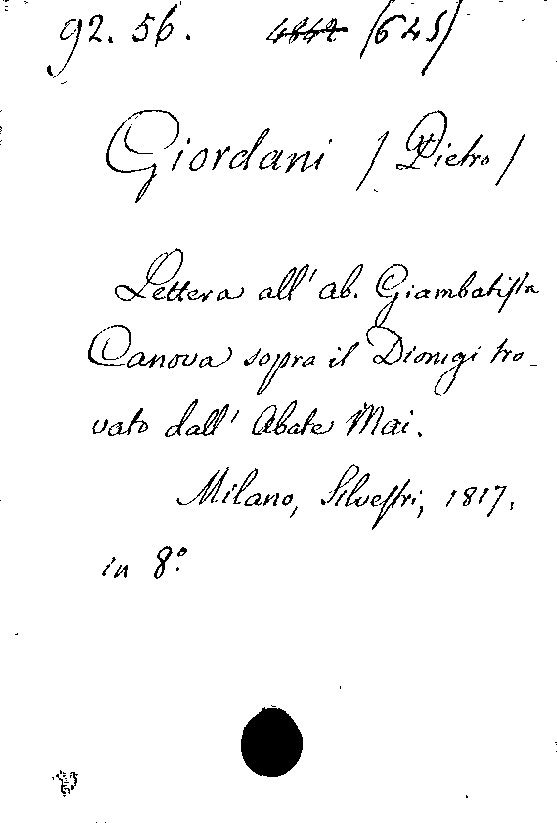 92. 56. 4842 /645/
Giordani / Pietro /
Lettera all' ab. Giambatista
Canova sopra il Dionigi tro-
vato dall' Abate Mai.
Milano, Silvestri, 1817.
in 8º